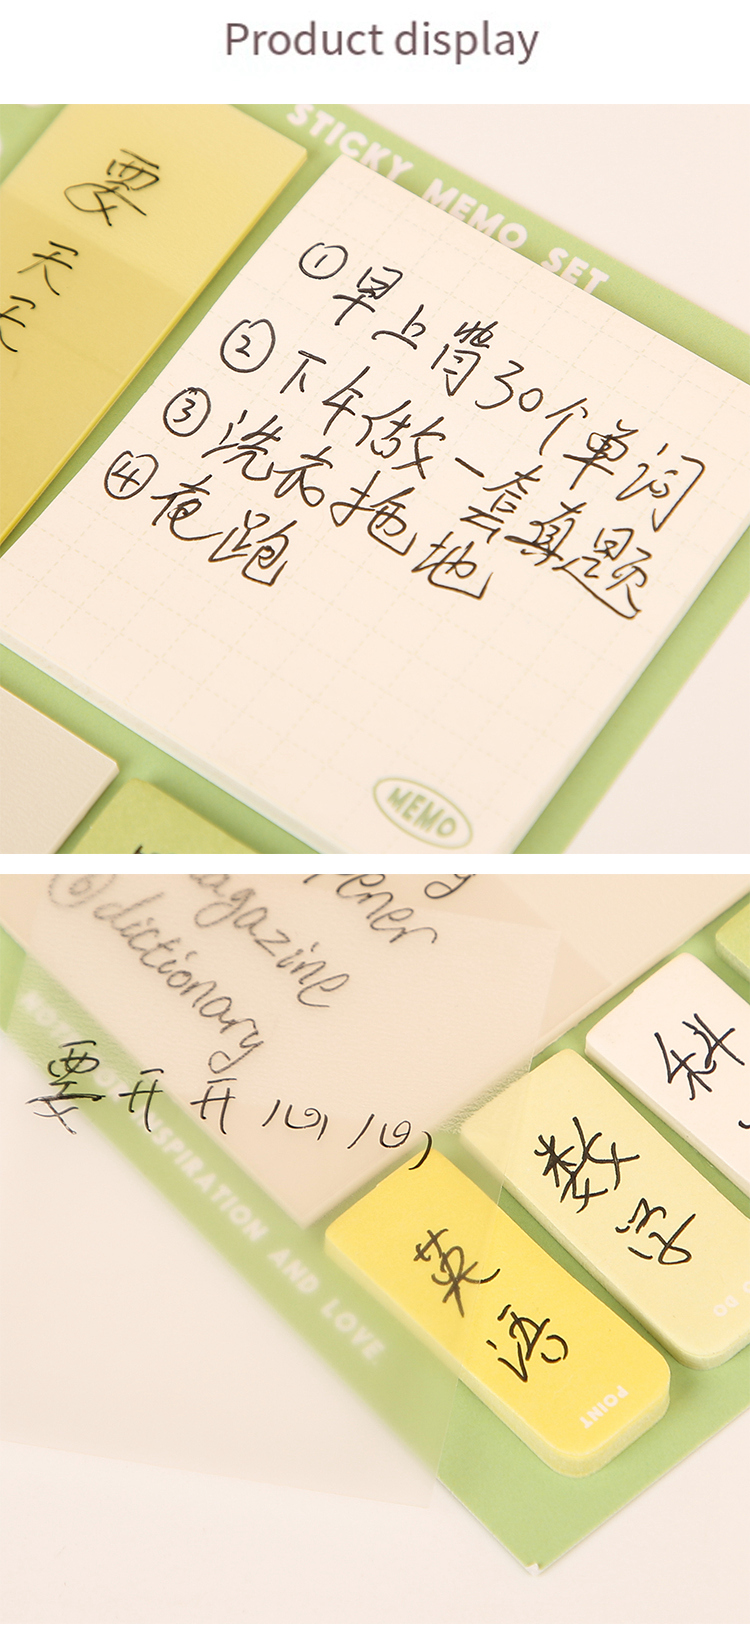 Product display
STICKY MEMO SET
要
天
天
①早上背30个单词
②下午做一套真题
③洗衣拖地
④夜跑
MEMO
⑥dictionary
要开开心心
INSPIRATION AND LOVE
数学
英语
POINT
DO